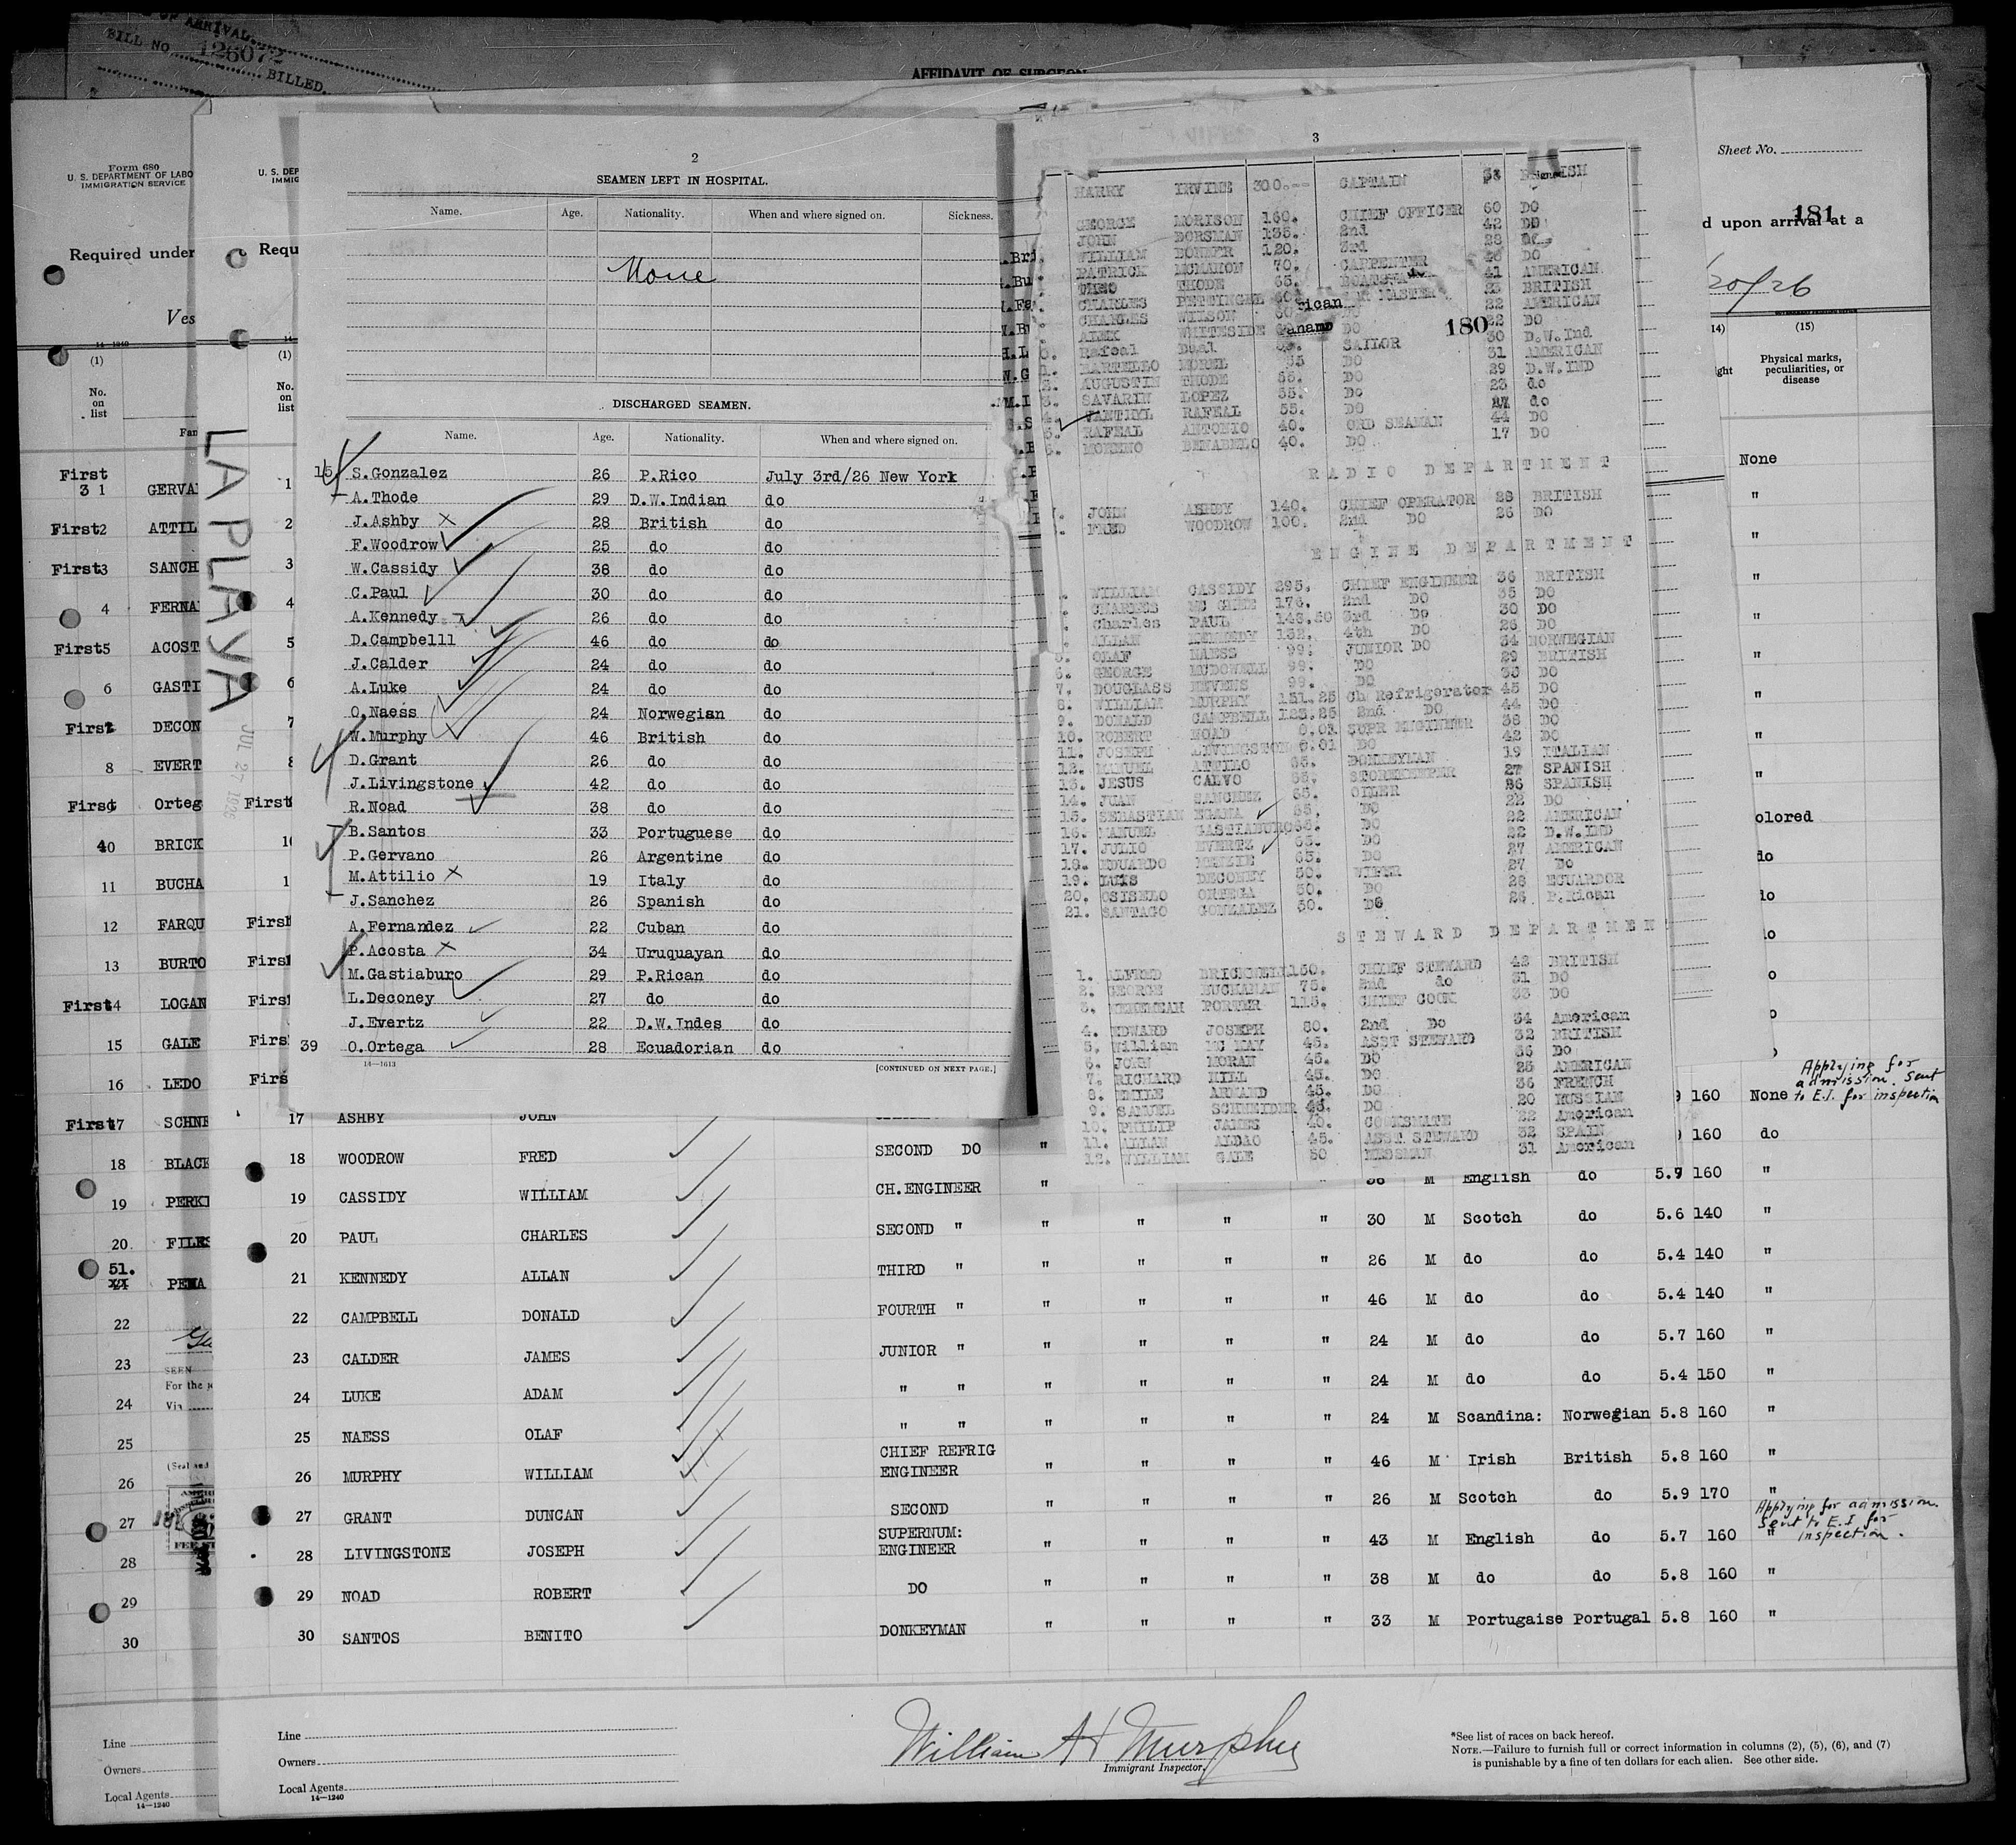 ARRIVAL
BILL NO. 126072
BILLED.
AFFIDAVIT OF SURGEON
Form 680
U. S. DEPARTMENT OF LABO
IMMIGRATION SERVICE
Required under
Ves
14—1240
(1)
No. on list
Fan
First 31 GERVA
First2 ATTIL
First3 SANCH
4 FERNA
First5 ACOST
6 GASTI
First DECON
8 EVERT
First Orteg
40 BRICK
11 BUCHA
12 FARQU
13 BURTO
First4 LOGAN
15 GALE
16 LEDO
First17 SCHNE
18 BLACK
19 PERKI
20. FILES
51. PENA
22
23
SEEN
For the
24
Via
25
26
(Seal and
27
28
29
30
Line
Owners
Local Agents
14—1240
U. S. DEP
IMMIG
Requ
(1)
No. on list
LA PLAYA
JUL 27 1926
1
2
3
4
5
6
7
8
First
10
1
First
First
First
First
First
2
SEAMEN LEFT IN HOSPITAL.
Name. Age. Nationality. When and where signed on. Sickness.
None
DISCHARGED SEAMEN.
Name. Age. Nationality. When and where signed on.
15 S.Gonzalez 26 P.Rico July 3rd/26 New York
A.Thode 29 D.W.Indian do
J.Ashby X 28 British do
F.Woodrow 25 do do
W.Cassidy 38 do do
C.Paul 30 do do
A.Kennedy 26 do do
D.Campbelll 46 do do
J.Calder 24 do do
A.Luke 24 do do
O.Naess 24 Norwegian do
W.Murphy 46 British do
D.Grant 26 do do
J.Livingstone 42 do do
R.Noad 38 do do
B.Santos 33 Portuguese do
P.Gervano 26 Argentine do
M.Attilio X 19 Italy do
J.Sanchez 26 Spanish do
A.Fernandez 22 Cuban do
P.Acosta X 34 Uruquayan do
M.Gastiaburo 29 P.Rican do
L.Deconey 27 do do
J.Evertz 22 D.W.Indes do
39 O.Ortega 28 Ecuadorian do
14—1613
[CONTINUED ON NEXT PAGE.]
3
HARRY IRVINE 300.-- CAPTAIN
GEORGE MORISON 160. CHIEF OFFICER 60 DO
JOHN DORSMAN 135. 2nd 42 DO
WILLIAM 120. 3rd 28
PATRICK MCMAHON 70. CARPENTER 40 DO
THODE 65. 41 AMERICAN
CHARLES 23 BRITISH
rican
CHARLES WILSON 60 22 AMERICAN
ALEX WHITESIDE DO 22 DO
180
Rafeal SAILOR 30 D.W.Ind
MOREL 55 DO 31 AMERICAN
AUGUSTIN THODE 55. DO 29 D.W.IND
SAVARIN LOPEZ 55. Do 23 do
RAFEAL 55. DO do
RAFEAL ANTONIO 40. ORD SEAMAN 44 DO
MORENO 40. DO 17 DO
RADIO DEPARTMENT
JOHN ASHBY 140. CHIEF OPERATOR 28 BRITISH
FRED WOODROW 100. 2nd DO 26 DO
ENGINE DEPARTMENT
WILLIAM CASSIDY 295. CHIEF ENGINEER 36 BRITISH
CHARLES 176. 2nd DO 35 DO
Charles PAUL 3rd Do 30 DO
ALLAN KENNEDY 132. 4th DO 26 DO
OLAF NAESS 99. JUNIOR DO 34 NORWEGIAN
6. GEORGE MCDOWELL 99. DO 29 BRITISH
7. DOUGLASS 99. DO DO
8. WILLIAM MURPHY 151.25 Ch Refrigerator 45 DO
9. DONALD CAMPBELL 123.25 2nd DO 44 DO
10. ROBERT NOAD 0.01 SUPR ENGINEER 38 DO
11. JOSEPH LIVINGSTON 0.01 DO 42 DO
12. MANUEL 65. DONKEYMAN 19 ITALIAN
13. JESUS CALVO 65. STOREKEEPER 27 SPANISH
14. JUAN SANCHEZ 65. OILER 26 SPANISH
15. SEBASTIAN 65. DO 22 DO
16. MANUEL GASTIABURO DO 22 AMERICAN
17. JULIO EVERTZ 65. DO 22 D.W.IND
18. EDUARDO 65. DO 27 AMERICAN
19. LUIS DECONEY 50. WIPER 27 DO
20. ORTEGA 50. DO 28 ECUARDOR
21. SANTAGO GONZALEZ 50. DO 26 P.Rican
STEWARD DEPARTMEN
1. ALFRED 150. CHIEF STEWARD 42 BRITISH
2. GEORGE BUCHANAN 75. 2nd do 31 DO
3. PORTER 115. CHIEF COOK 33 DO
4. EDWARD JOSEPH 80. 2nd Do 34 American
5. William MC KAY 45. ASST STEWARD 32 BRITISH
6. JOHN MORAN 45. DO 36 DO
7. RICHARD HILL 45. DO 25 AMERICAN
8. EMILE ARMAND 45. DO 36 FRENCH
9. SAMUEL SCHNEIDER 45. DO 20 RUSSIAN
10. PHILIP JAMES 40. 22 American
11. ALLAN ALDAO 45. ASST STEWARD 32 SPAIN
12. WILLIAM GALE 50 MESSMAN 31 American
Sheet No.
181
d upon arrival at a
20/26
14) (15)
ght Physical marks, peculiarities, or disease
None
"
"
"
"
"
"
"
"
olored
do
do
17 ASHBY JOHN 160 None
Applying for admission. Sent to E.I. for inspection
18 WOODROW FRED SECOND DO " 160 do
19 CASSIDY WILLIAM CH.ENGINEER " M English do 5.9 160 "
20 PAUL CHARLES SECOND " " " " " 30 M Scotch do 5.6 140 "
21 KENNEDY ALLAN THIRD " " " " " 26 M do do 5.4 140 "
22 CAMPBELL DONALD FOURTH " " " " " 46 M do do 5.4 140 "
23 CALDER JAMES JUNIOR " " " " " 24 M do do 5.7 160 "
24 LUKE ADAM " " " " " " 24 M do do 5.4 150 "
25 NAESS OLAF " " " " " " 24 M Scandina: Norwegian 5.8 160 "
26 MURPHY WILLIAM CHIEF REFRIG ENGINEER " " " " 46 M Irish British 5.8 160 "
27 GRANT DUNCAN SECOND " " " " 26 M Scotch do 5.9 170 "
28 LIVINGSTONE JOSEPH SUPERNUM: ENGINEER " " " " 43 M English do 5.7 160 "
Applying for admission. Sent to E.I for inspection.
29 NOAD ROBERT DO " " " " 38 M do do 5.8 160 "
30 SANTOS BENITO DONKEYMAN " " " " 33 M Portugaise Portugal 5.8 160 "
Line
Owners
Local Agents
14—1240
William A Murphy
Immigrant Inspector.
*See list of races on back hereof.
NOTE.—Failure to furnish full or correct information in columns (2), (5), (6), and (7)
is punishable by a fine of ten dollars for each alien. See other side.